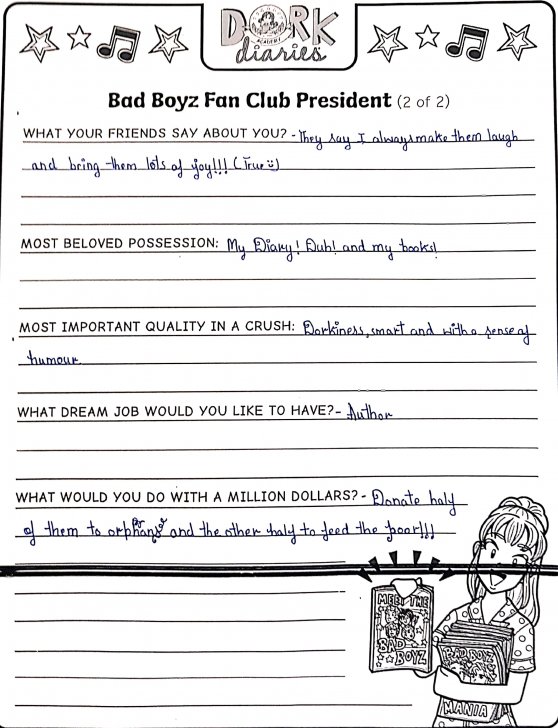 DORK
diaries
Bad Boyz Fan Club President (2 of 2)
WHAT YOUR FRIENDS SAY ABOUT YOU? - They say I always make them laugh
and bring them lots of joy!!! (True)
MOST BELOVED POSSESSION: My Diary! Duh! and my books!
MOST IMPORTANT QUALITY IN A CRUSH: Dorkiness, smart and with a sense of
humour
WHAT DREAM JOB WOULD YOU LIKE TO HAVE? - Author
WHAT WOULD YOU DO WITH A MILLION DOLLARS? - Donate half
of them to orphans and the other half to feed the poor!!!
MEET THE
BAD
BOYZ
BAD BOYZ
MANIA